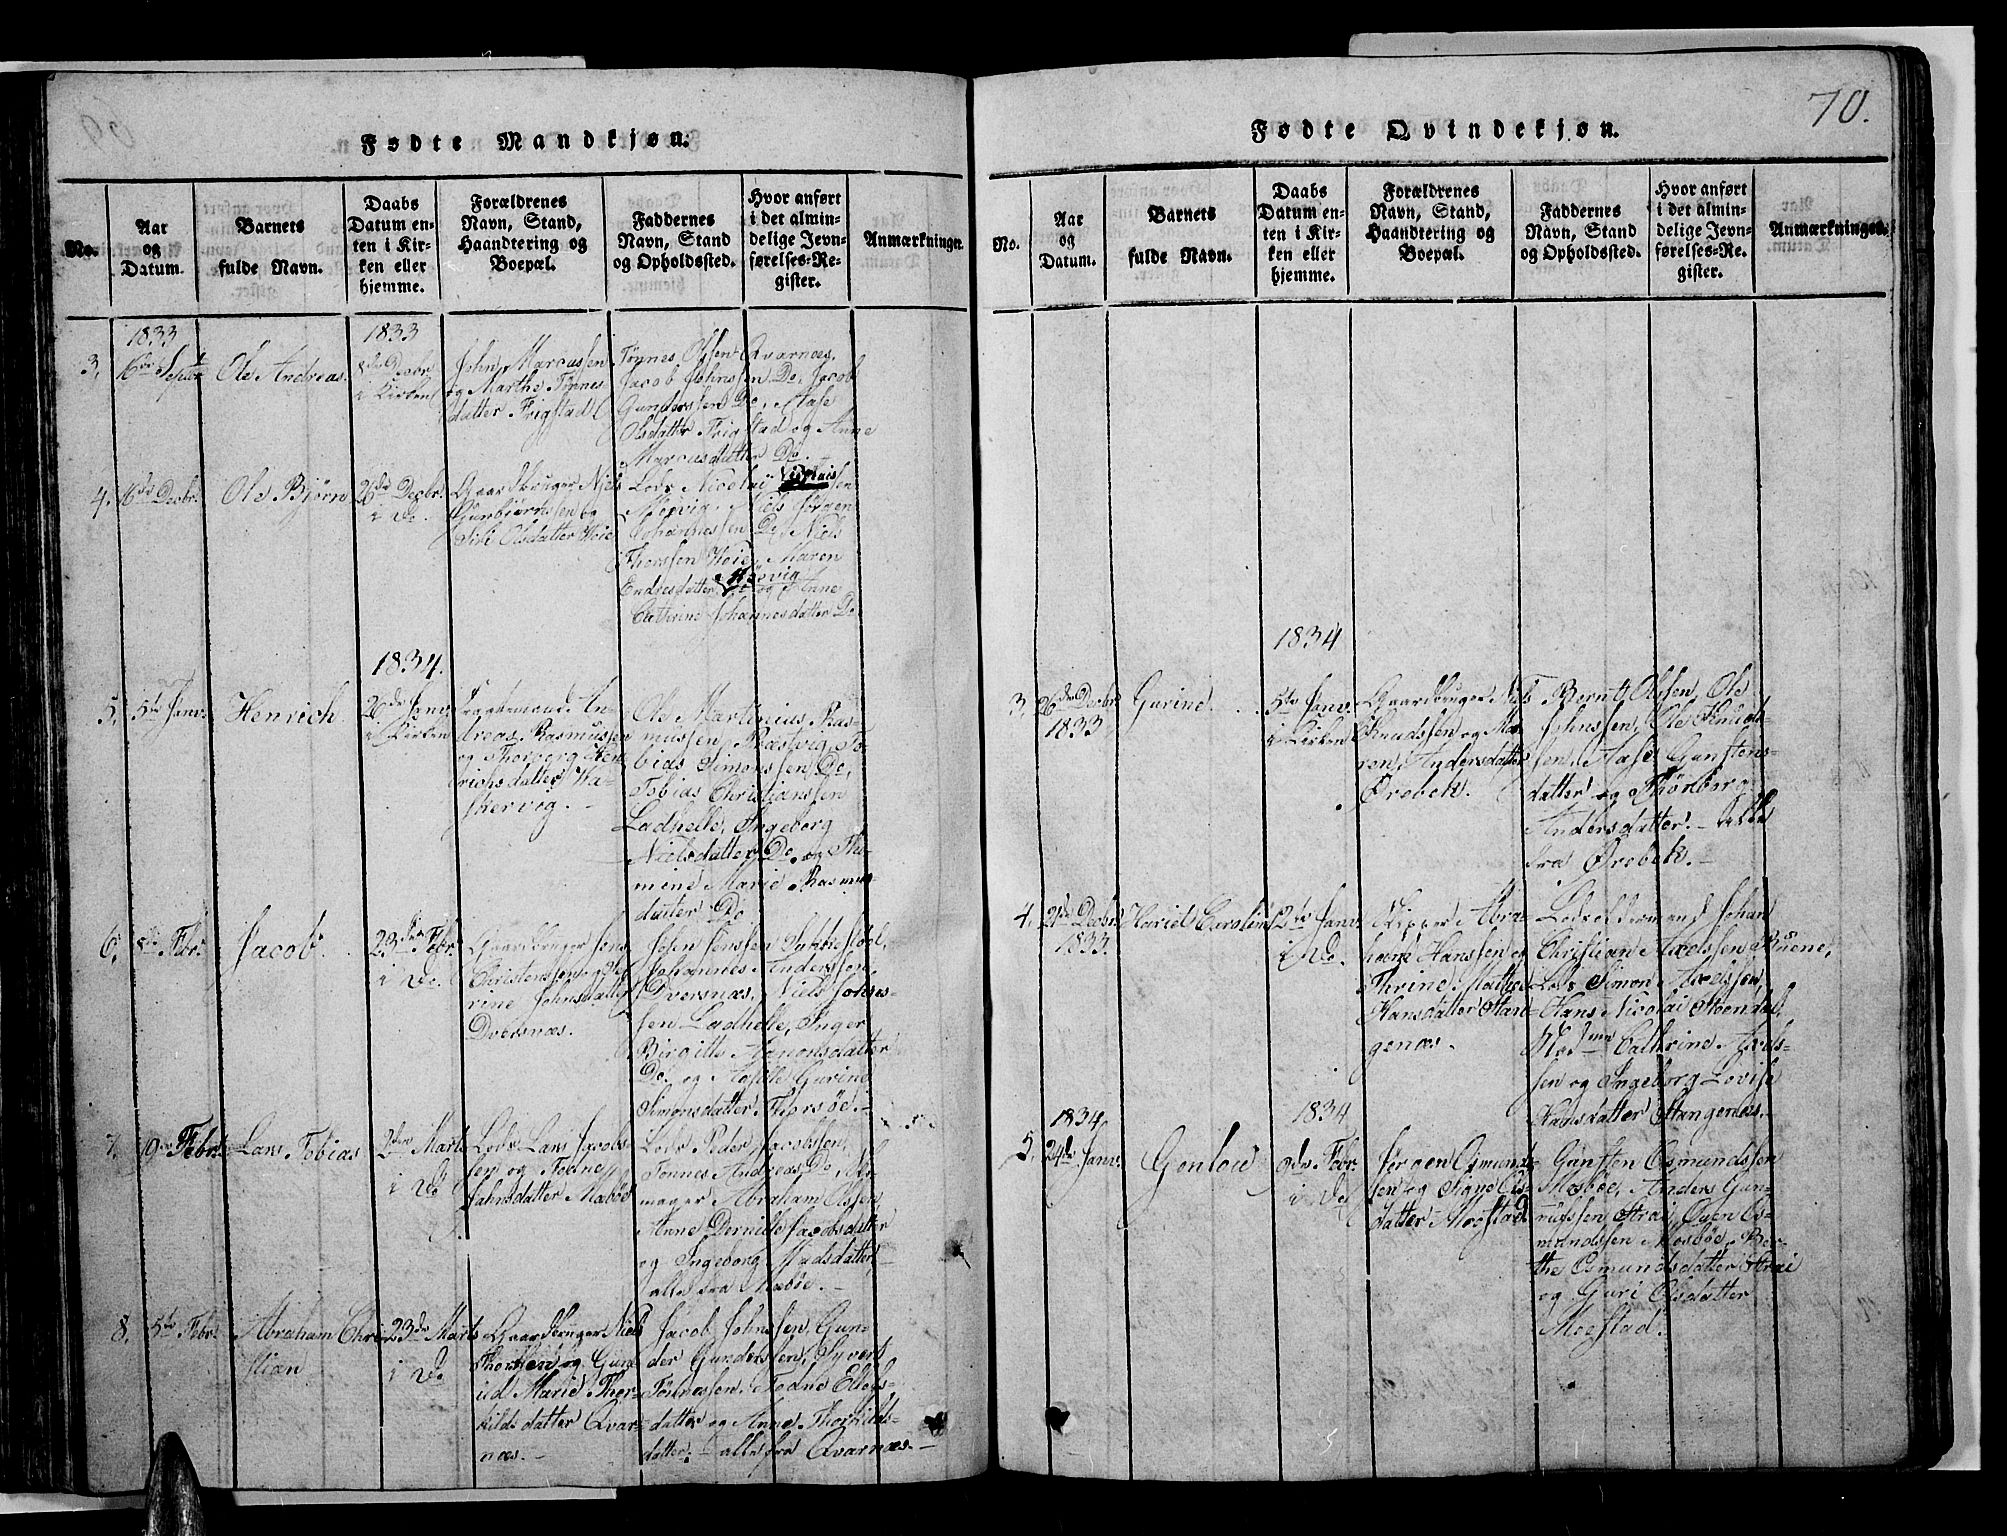 Fødte Mandkjøn.
No.
Aar
og
Datum.
Barnets
fulde Navn.
Daabs
Datum en-
ten i Kir-
ken eller
hjemme.
Forældrenes
Navn, Stand,
Haandtering og
Boepæl.
Faddernes
Navn, Stand
og Opholdssted.
Hvor anført
i det almin-
delige Jevn-
førelses-Re-
gister.
Anmærkninger.
1833
3. 16de Septbr
Ole Andreas.
1833
8de Decbr
i Kirken
John Marcussen
og Marthe Tønnes
datter Frigstad
Tønnes Olssen Qvarnæs,
Jacob Johnssen Do, Jacob
Gunderssen Do, Aase
Olsdatter Frigstad og Anne
Marcusdatter Do.
4. 16de Decbr.
Ole Bjørn
26de Decbr.
i Do.
Gaardbruger Niels
Gunbiørnssen og
Siri Olsdatter Høie
Lods Nicolai
Møvig, Niels Jørgen
Johannessen Do, Niels
Thorssen Høie, Maren
Endresdatter Møvig og Anne
Cathrine Johannesdatter Do
1834.
5. 5te Janv.
Henrich
26de Janv.
i Kirken
An-
dreas Rasmussen
og Thorborg Hen-
richsdatter Wa-
skervog.
Ole Martinius Ras-
mussen Præstvig, To-
bias Simonssen Do,
Tobias Christianssen
Ladhelle, Ingeborg
Nielsdatter Do og Tho-
mine Marie Rasmus-
datter Do
6. 8de Febr.
Jacob.
23de Febr.
i Do.
Gaardbruger Jens
Christenssen og
rine Johnsdatter
Dversnæs.
John Jenssen
Johannes Anderssen
Dversnæs, Niels Johnes-
sen Ladhelle, Inger
Birgitte Aanonsdatter
Do. og Aaselle Gurine
Simonsdatter Thorsøe.
7. 19de Febr.
Lars Tobias
2den Marts
i Do
Lods Lars Jacobs-
sen og Todne
Jahnsdatter Mæbøe
Lods Peder Jacobssen,
Tønnes Andreas Do,
mager Abraham Olssen
Anne Pernille Jacobsdatter
og Ingeborg Madsdatter,
alle fra Mæbøe.
8. 5te Febr.
Abraham Chri-
stian
23de Marts
i Do
Gaardbruger Niels
Thorssen og Gun-
ild Marie Thor-
kildsdatter Qvar-
næs.
Jacob Johnssen, Gun-
der Gunderssen, Syvert
Tønnessen, Todne Ellefs-
datter og Anne Thorkilds-
datter. alle fra Qvarnæs.
70.
Fødte Qvindekjøn.
No.
Aar
og
Datum.
Barnets
fulde Navn.
Daabs
Datum en-
ten i Kir-
ken eller
hjemme.
Forældrenes
Navn, Stand,
Haandtering og
Boepæl.
Faddernes
Navn, Stand
og Opholdssted.
Hvor anført
i det almin-
delige Jevn-
førelses-Re-
gister.
Anmærkninger.
1834
3. 26de Decbr.
1833
Gurine.
5te Janv.
i Kirken
Gaardbruger Niels
Knudssen og Ma-
ren Andersdatter
Ørebek.
Bernt Olssen, Ole
Johnssen, Ole Knud-
sen, Aase Gunstens-
datter og Thorborg
Andersdatter. alle
fra Ørebek.
4. 21de Decbr
1833.
Hariel Caroline
12te Janv.
i Do.
Skipper Abra-
ham Hanssen og
Thrine Mathea
Hansdatter Stan-
genæs.
Lodsoldermand Johan
Christian Axelssen Buene,
Lods Simon Axelssen,
Hans Nicolai Steendal,
Cathrine Axels-
sen og Ingeborg Lovise
Hansdatter Stangenæs.
1834
5. 24de Janv.
Gonloie
1834
9de Febr.
i Do
Jørgen Osmund-
sen og Signe Ols-
datter Moestad
Gunsten Osmundssen
Mosbøe, Anders Gun-
nufssen Strai, Oven Os-
mundssen Mosbøe, Ber-
the Osmundsdatter Strai
og Guri Olsdatter
Moestad.